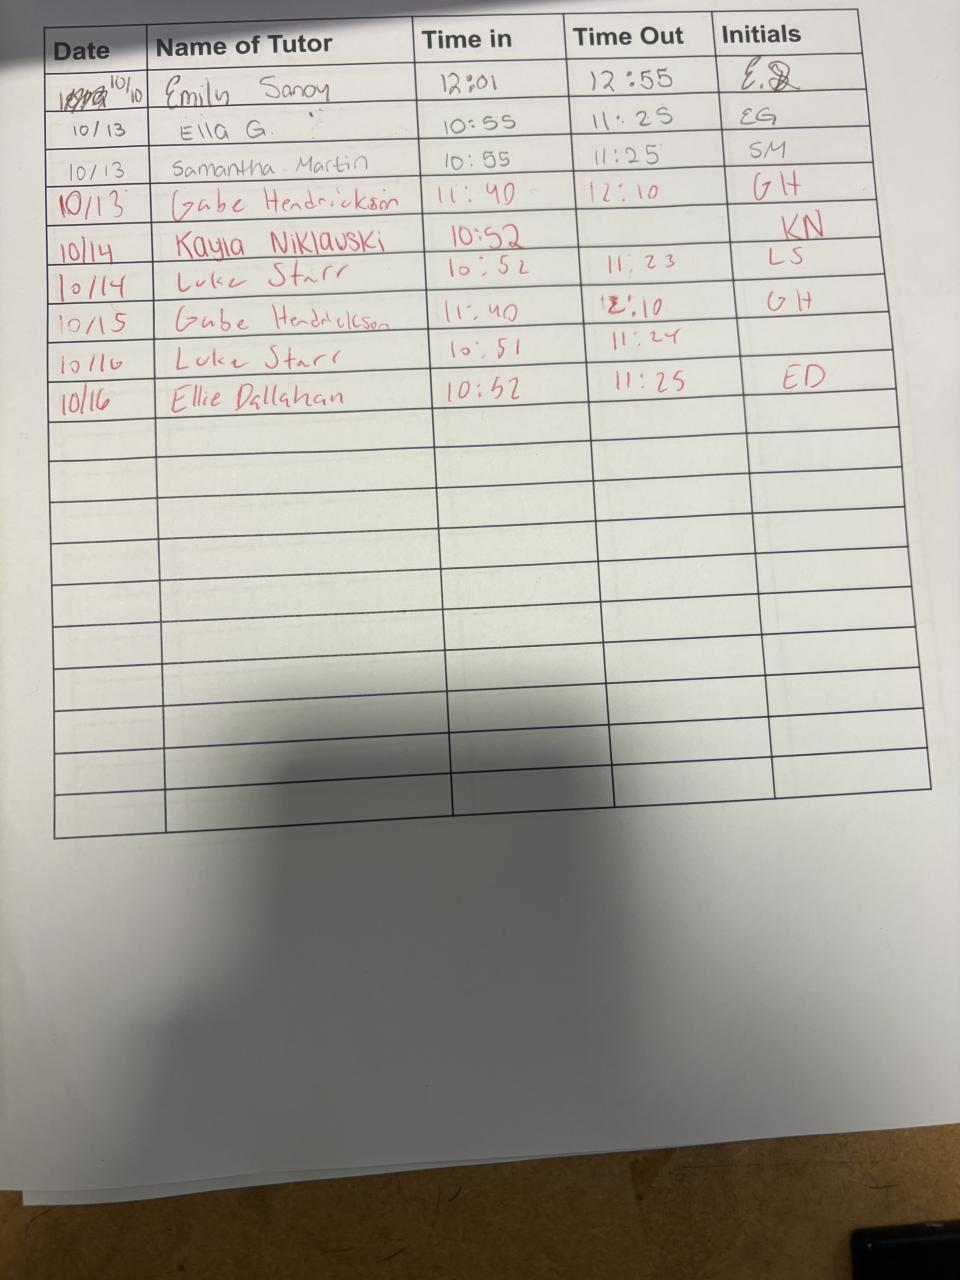 Date Name of Tutor Time in Time Out Initials
10/10 Emily Sanoy 12:01 12:55 E.S
10/13 Ella G. 10:55 11:25 EG
10/13 Samantha Martin 10:55 11:25 SM
10/13 Gabe Hendrickson 11:40 12:10 GH
10/14 Kayla Niklauski 10:52 KN
10/14 Luke Starr 10:52 11:23 LS
10/15 Gabe Hendrickson 11:40 12:10 GH
10/16 Luke Starr 10:51 11:24
10/16 Ellie Dallahan 10:52 11:25 ED